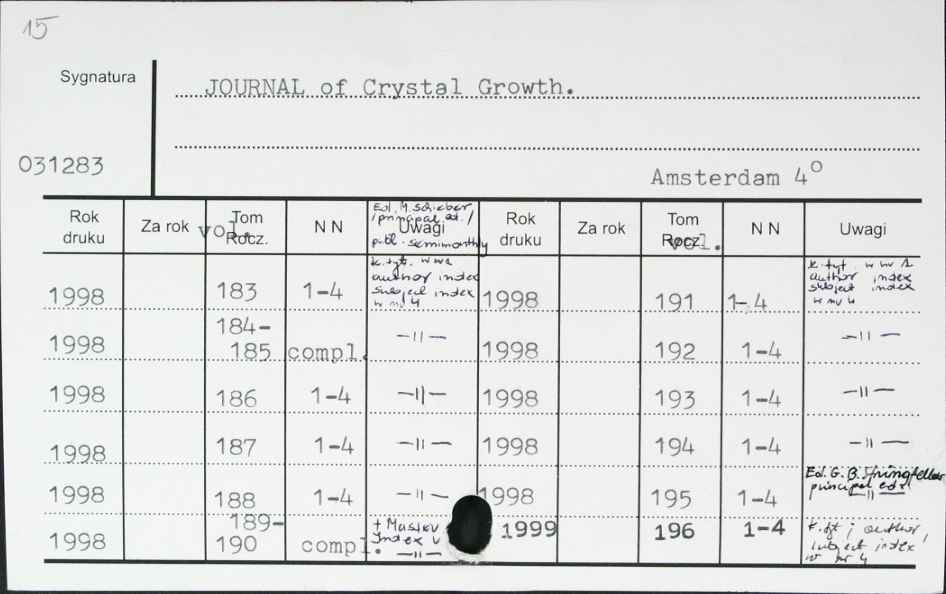 15
Sygnatura
JOURNAL of Crystal Growth.
031283
Amsterdam 4°
Rok druku Za rok vol. Tom Rocz. N N Uwagi Rok druku Za rok Tom Rocz. vol. N N Uwagi
Ed. M. Schieber
/principal ed./
publ. semimonthly
1998 183 1-4 k. tyt. w nr 1
author index
subject index
w nr 4
1998 191 1-4 k. tyt. w nr 1
author index
subject index
w nr 4
1998 184-
185 compl. —II—
1998 192 1-4 —II—
1998 186 1-4 —II—
1998 193 1-4 —II—
1998 187 1-4 —II—
1998 194 1-4 —II—
1998 188 1-4 —II—
1998 195 1-4 Ed. G. B. Stringfellow
principal edr.
—II—
1998 189-
190 compl. Index
—II—
1999 196 1-4 k. tyt ; author,
subject index
w nr 4